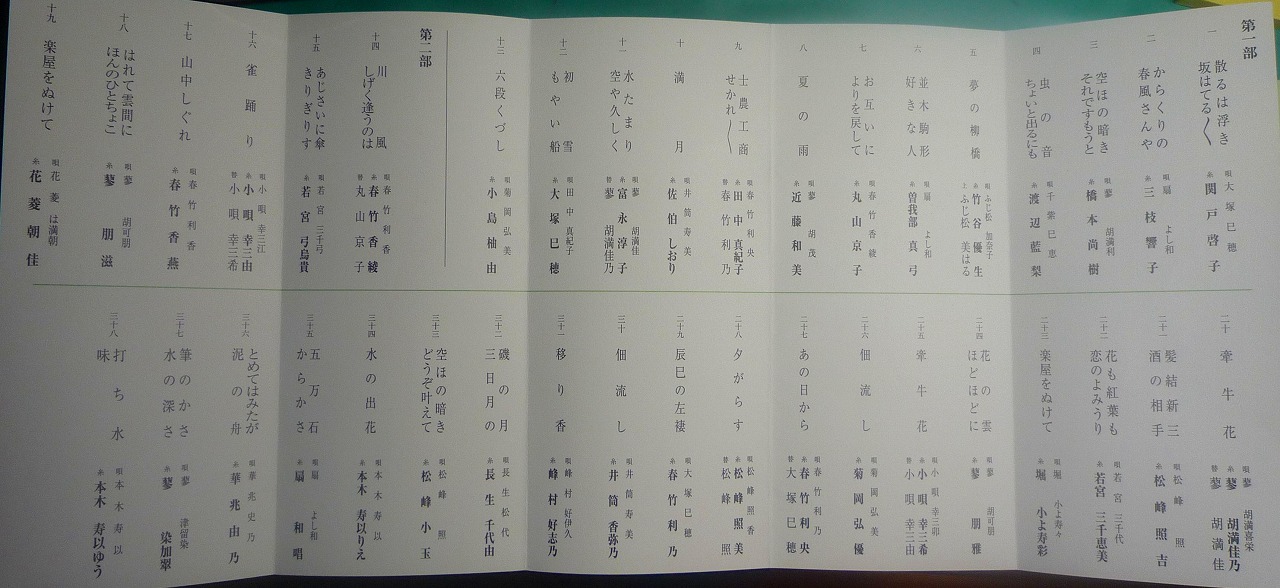 第一部
一
散るは浮き
坂はてる〱
唄 大塚巳穂
糸 関戸啓子
二
からくりの
春風さんや
唄 扇よし和
糸 三枝響子
三
空ほの暗き
それですもうと
唄 蓼胡満利
糸 橋本尚樹
四
虫の音
ちょいと出るにも
唄 千紫巳恵
糸 渡辺藍梨
五
夢の柳橋
唄 ふじ松加奈子
糸 竹谷優生
上 ふじ松美はる
六
並木駒形
好きな人
唄 扇よし和
糸 曽我部真弓
七
お互いに
よりを戻して
唄 春竹香綾
糸 丸山京子
八
夏の雨
唄 蓼胡茂
糸 近藤和美
九
士農工商
せかれ〱
唄 春竹利央
糸 田中真紀子
替 春竹利乃
十
満月
唄 井筒寿美
糸 佐伯しおり
十一
水たまり
空や久しく
唄 蓼胡満佳
糸 富永淳子
替 蓼胡満佳乃
十二
初雪
もやい船
唄 田中真紀子
糸 大塚巳穂
十三
六段くづし
唄 菊岡弘美
糸 小島柚由
第二部
十四
川風
しげく逢うのは
唄 春竹利香
糸 春竹香綾
替 丸山京子
十五
あじさいに傘
きりぎりす
唄 若宮三千弓
糸 若宮弓烏貴
十六
雀踊り
唄 小唄幸三江
糸 小唄幸三由
替 小唄幸三希
十七
山中しぐれ
唄 春竹利香
糸 春竹香燕
十八
はれて雲間に
ほんのひとちょこ
唄 蓼胡可朋
糸 蓼朋滋
十九
楽屋をぬけて
唄 花菱は満朝
糸 花菱朝佳
二十
牽牛花
唄 蓼胡満喜栄
糸 蓼胡満佳乃
替 蓼胡満佳
二十一
髪結新三
酒の相手
唄 松峰照
糸 松峰照吉
二十二
花も紅葉も
恋のよみうり
唄 若宮三千代
糸 若宮三千恵美
二十三
楽屋をぬけて
唄 堀小よ寿々
糸 堀小よ寿彩
二十四
花の雲
ほどほどに
唄 蓼胡可朋
糸 蓼朋雅
二十五
牽牛花
唄 小唄幸三卯
糸 小唄幸三希
替 小唄幸三由
二十六
佃流し
唄 菊岡弘美
糸 菊岡弘優
二十七
あの日から
唄 春竹利乃
糸 春竹利央
替 大塚巳穂
二十八
夕がらす
唄 松峰照香
糸 松峰照美
替 松峰照
二十九
辰巳の左褄
唄 大塚巳穂
糸 春竹利乃
三十
佃流し
唄 井筒寿美
糸 井筒香弥乃
三十一
移り香
唄 峰村好伊久
糸 峰村好志乃
三十二
磯の月
三日月の
唄 長生松代
糸 長生千代由
三十三
空ほの暗き
どうぞ叶えて
唄 松峰照
糸 松峰小玉
三十四
水の出花
唄 本木寿以
糸 本木寿以りえ
三十五
五万石
からかさ
唄 扇よし和
糸 扇和唱
三十六
とめてはみたが
泥の舟
唄 華兆史乃
糸 華兆由乃
三十七
筆のかさ
水の深さ
唄 蓼津留染
糸 蓼染加翠
三十八
打ち水
味
唄 本木寿以
糸 本木寿以ゆう